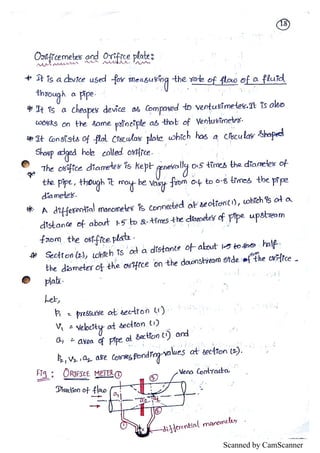 18
Orificemeter and Orifice plate:
* It is a device used for measuring the rate of flow of a fluid
through a pipe.
* It is a cheaper device as compared to venturimeter. It is also
works on the same principle as that of Venturimeter.
* It Consists of flat Circular plate which has a circular shaped
Sharp edged hole called orifice.
* The orifice diameter is kept generally 0.5 times the diameter of
the pipe, though it may be vary from 0.4 to 0.8 times the pipe
diameter.
* A differential manometer is connected at section(1), which is at a
distance of about 1.5 to 2.0 times the diameter of pipe upstream
from the orifice plate.
* Section (2), which is at a distance of about half
the diameter of the orifice on the downstream side of the orifice
plate.
Let,
P₁ = pressure at section (1)
V₁ = velocity at section (1)
a₁ = area of pipe at section (1) and
P₂, V₂, a₂ are corresponding values at section (2).
Fig: ORIFICE METER ① ② Vena Contracta.
Direction of flow
differential manometer
Scanned by CamScanner